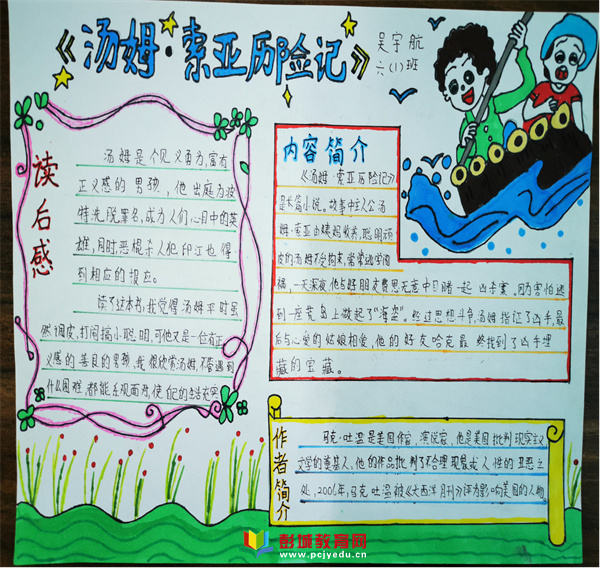 《汤姆·索亚历险记》
吴宇航
六(1)班
读后感
汤姆是个见义勇为,富有
正义感的男孩,他出庭为波
特洗脱罪名,成为人们心目中的英
雄,同时,恶棍杀人犯印江也得
到相应的报应。
读了这本书,我觉得汤姆平时虽
然调皮,打闹搞小聪明,可他又是一位有正
义感的善良的男孩,我很欣赏汤姆,不管遇到
什么困难,都能乐观面对,使自己的生活充实
内容简介
《汤姆·索亚历险记》
是长篇小说。故事中主人公汤
姆·索亚由姨妈收养,聪明顽
皮的汤姆不受约束,常常逃学闯
祸,一天深夜,他与好朋友费恩无意中目睹一起凶杀案。因为害怕逃
到一座荒岛上做起了“海盗”。经过思想斗争,汤姆指证了凶手,最
后与心爱的姑娘相爱,他的好友哈克最终找到了凶手埋
藏的宝藏。
作者简介
马克·吐温是美国作家,演说家,他是美国批判现实主义
文学的奠基人,他的作品批判了不合理现象或人性的丑恶之
处,2006年,马克·吐温被《大西洋月刊》评为影响美国的人物
彭城教育网
www.pcjyedu.cn